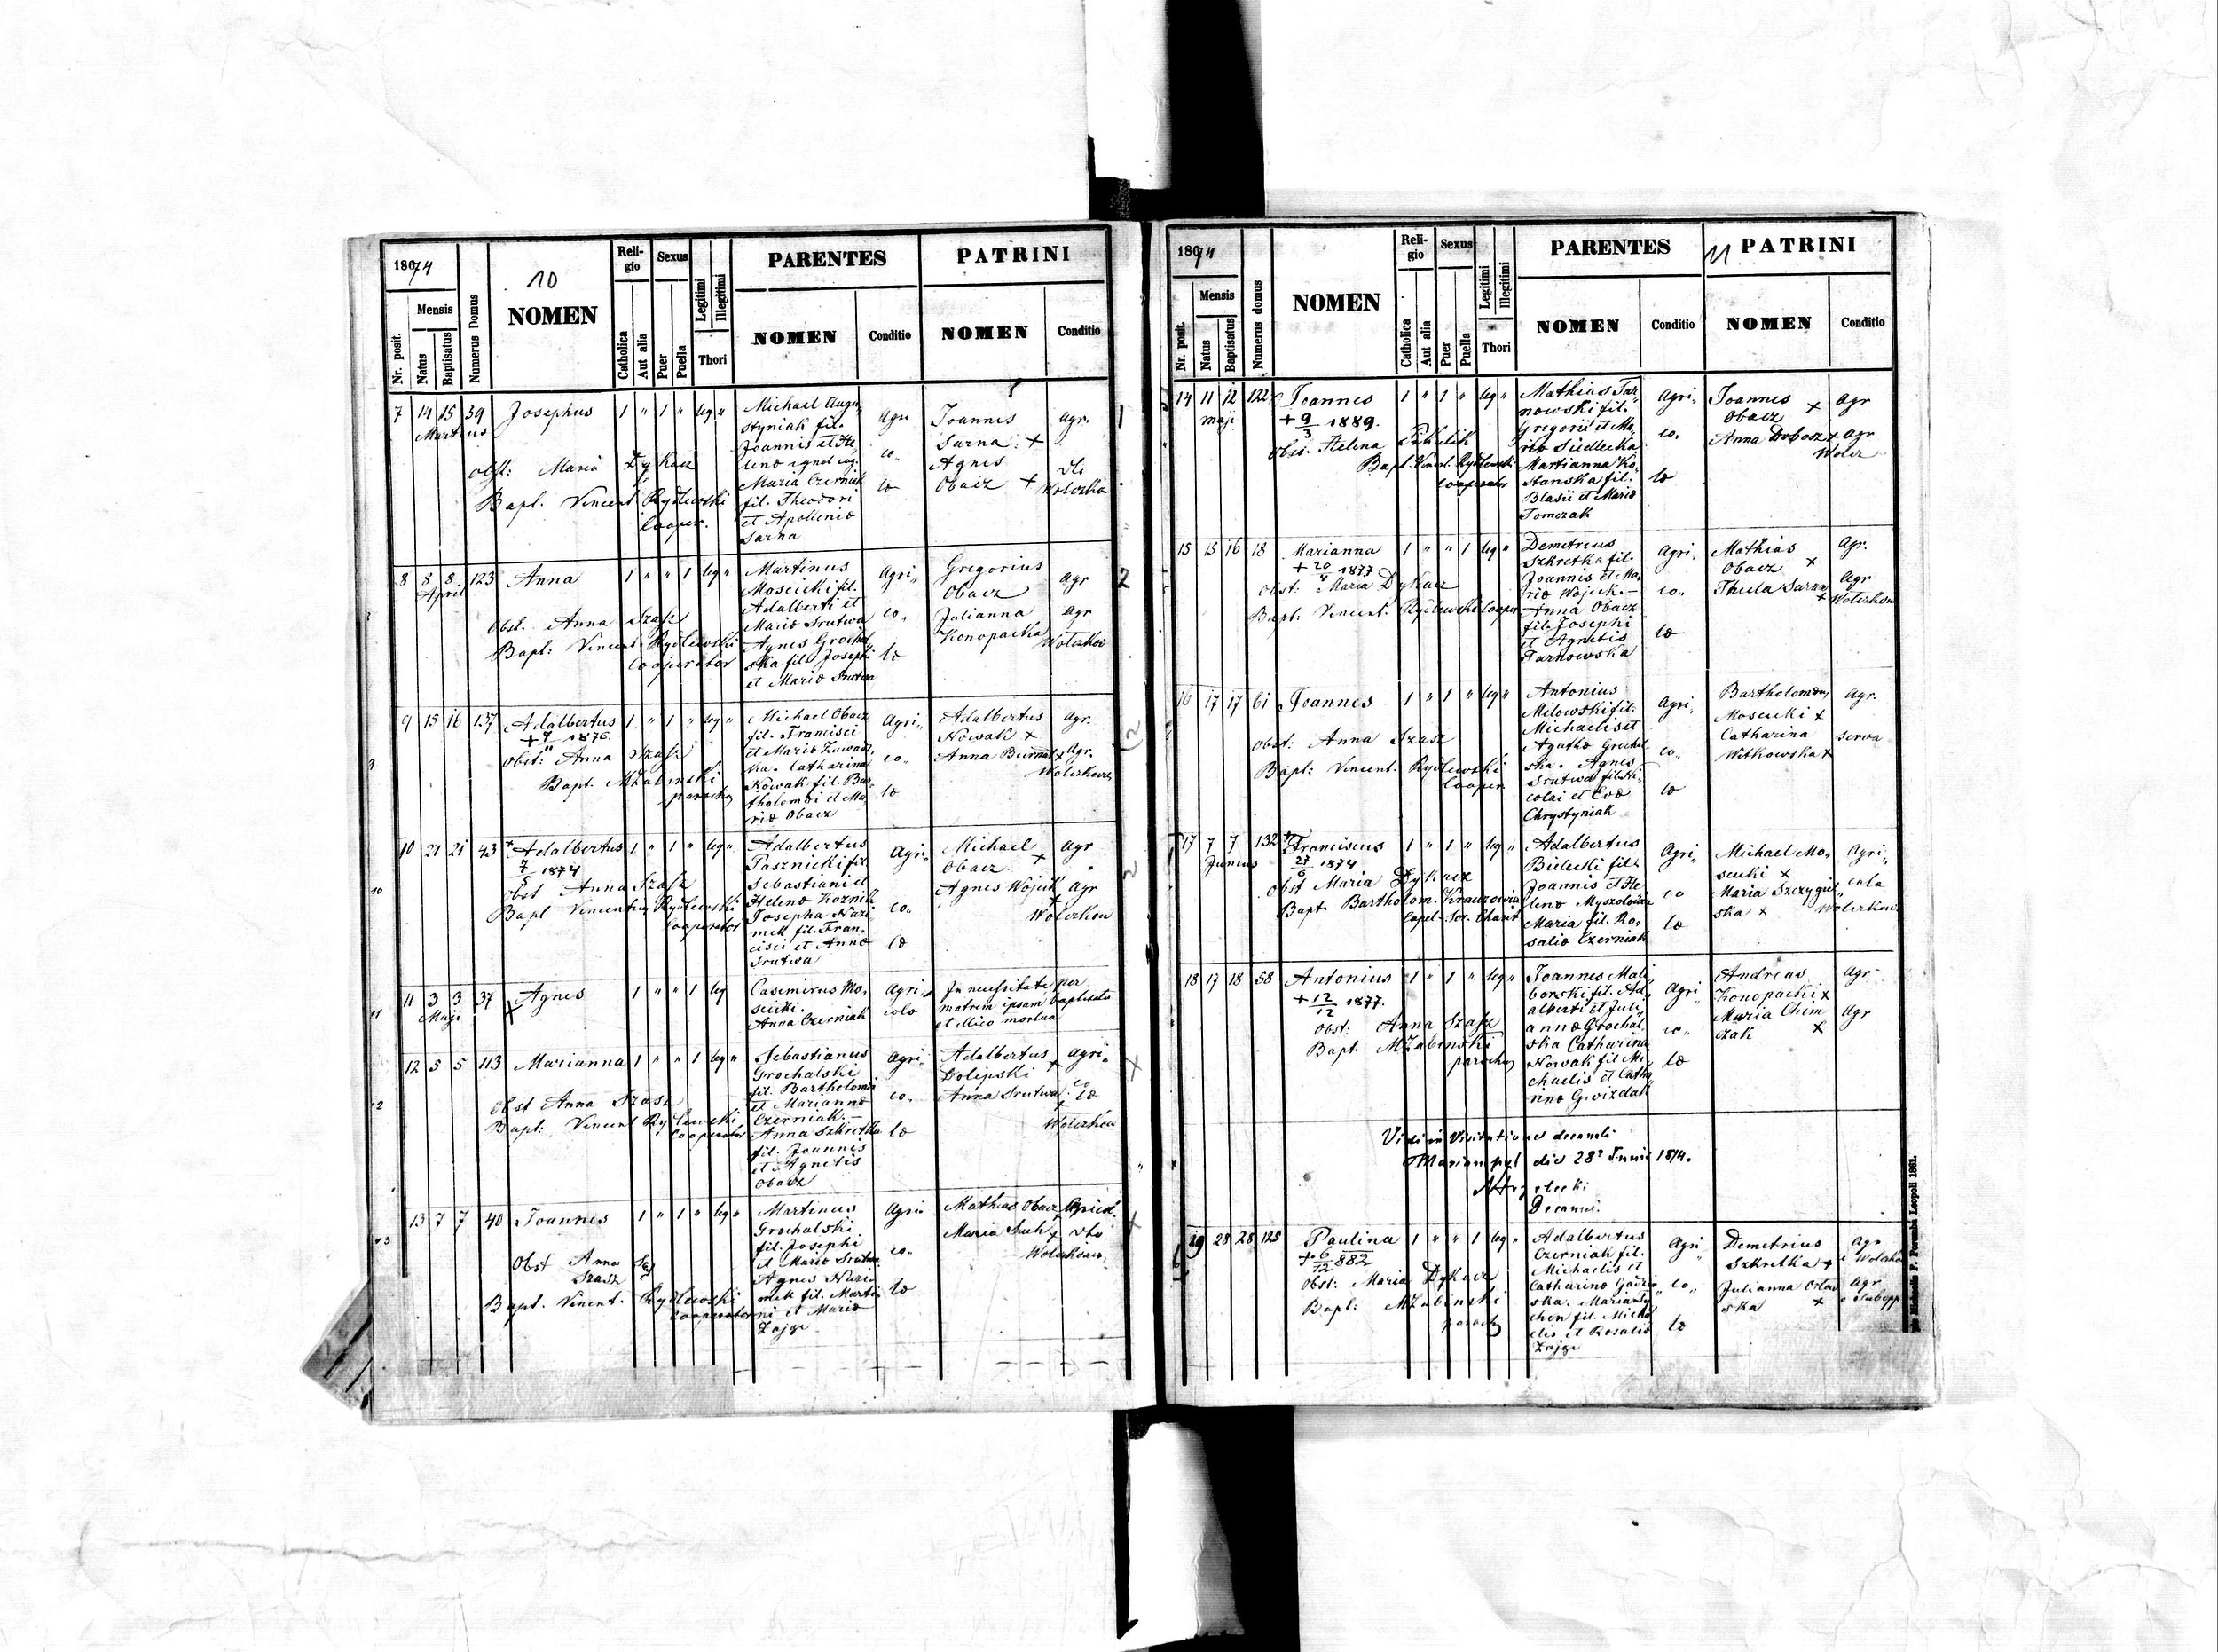 1874
10
Nr. posit.
Mensis
Natus
Baptisatus
Numerus Domus
NOMEN
Reli-
gio
Catholica
Aut alia
Sexus
Puer
Puella
Legitimi
Illegitimi
Thori
PARENTES
NOMEN
Conditio
PATRINI
NOMEN
Conditio
7 14 15 39 Josephus 1 " 1 " leg "
Martius
Obst: Maria Dykacz
Bapt. Vincent Rydlewski
Cooper.
Michael Augu
styniak fil.
Joannis et He
Maria Czerniak
fil. Theodori
et Apollenia
Sarna
Agri
co
la
Joannes
Sarna +
Agnes
Obacz +
agr.
Wolczków
8 8 8 123 Anna 1 " " 1 leg "
April
Obst. Anna Szasz
Bapt: Vincent Rydlewski
Cooperator
Martinus
Moscicki fil.
Adalberti et
Maria Srutwa
Agnes Grochal
ska fil. Josephi
et Maria Srutwa
Agri
co
la
Gregorius
Obacz
Julianna
Konopacka
Agr
Agr
Wolczków
9 15 16 137 Adalbertus 1 " 1 " leg "
1876
Obst: Anna Szasz
Bapt. MŻabinski
parochus
Michael Obacz
fil. Francisci
et Maria Zawadz
ka. Catharina
Nowak fil. Bar
tholomæi et Ma
ria Obacz
Agri
co
la
Adalbertus
Nowak +
Anna Burnat +
Agr.
Agr.
Wolczkow
10 21 21 43 + Adalbertus 1 " 1 " leg "
7/5 1874
Obst Anna Szasz
Bapt Vincentius Rydlewski
Cooperator
Adalbertus
Pasznicki fil
Sebastiani et
Helena Koznik
Josepha Nazi
mek fil. Fran
cisci et Anna
Srutwa
Agri
co
la
Michael
Obacz +
Agnes Wojcik
+
Agr
Agr
Wolczkow
11 3 3 37 Agnes 1 " " 1 leg
Maji
Casimirus Mo
scicki.
Anna Czerniak
Agri
cola
In necessitate per
matrem ipsam baptisata
et illico mortua
12 5 5 113 Marianna 1 " " 1 leg "
Obst Anna Szasz
Bapt: Vincent Rydlewski
Cooperator
Sebastianus
Grochalski
fil. Bartholomæi
et Marianna
Czerniak.
Anna Szkretka
fil. Joannis
et Agnetis
Obacz
Agri
co
la
Adalbertus
Dolipski +
Anna Srutwa
Agri
co
la
Wolczków
13 7 7 40 Joannes 1 " 1 " leg "
Obst Anna
Szasz
Bapt. Vincent. Rydlewski
Cooperator
Martinus
Grochalski
fil. Josephi
et Maria Srutwa
Agnes Nazi
mek fil. Marti
ni et Maria
Zając
Agri
co
la
Mathias Obacz
Maria Suck +
Wolczkow
1874
11
Nr. posit.
Mensis
Natus
Baptisatus
Numerus domus
NOMEN
Reli-
gio
Catholica
Aut alia
Sexus
Puer
Puella
Legitimi
Illegitimi
Thori
PARENTES
NOMEN
Conditio
PATRINI
NOMEN
Conditio
14 11 12 122 Joannes 1 " 1 " leg "
Maji
+ 9/3 1889.
Obst. Helena
Bapt. Vincent. Rydlewski
Cooperator
Mathias Tar
nowski fil.
Gregorii et Ma
ria Siedlecka
Martianna Ko
stanska fil.
Blasii et Maria
Tomczak
Agri
co
la
Joannes
Obacz +
Anna Dobosz +
Agr
Agr
Wolcz
15 15 16 18 Marianna 1 " " 1 leg "
+ 20/4 1877
Obst: Maria Dykacz
Bapt: Vincent. Rydlewski Cooper
Demetrius
Szkretka fil.
Joannis et Ma
ria Wojcik.
Anna Obacz
fil. Josephi
et Agnetis
Tarnowska
Agri
co
la
Mathias
Obacz +
Thecla Sarna
+
Agr.
Agr
Wolczkow
16 17 17 61 Joannes 1 " 1 " leg "
Obst: Anna Szasz
Bapt: Vincent. Rydlewski
Cooper
Antonius
Milowski fil.
Michaelis et
Agatha Grochal
ska. Agnes
Srutwa fil. Ni
colai et Eva
Chrystyniak
Agri
co
la
Bartholomæus
Moscicki +
Catharina
Witkowska +
Agr.
serva
17 7 7 132 + Franciscus 1 " 1 " leg "
Junius
27/6 1874
Obst Maria Dykacz
Bapt. Bartholom.
Capel. Soc. Charit
Adalbertus
Bielecki fil.
Joannis et He
lena
Maria fil. Ro
salia Czerniak
Agri
co
la
Michael Mo
scicki +
Maria Szczygiel
ska +
Agri
cola
Wolczkow
18 17 18 58 Antonius 1 " 1 " leg "
+ 12/12 1877.
Obst: Anna Szasz
Bapt. MŻabinski
parochus
Joannes Mali
borski fil. Ad
alberti et Juli
anna Grochal
ska Catharina
Nowak fil Mi
chaelis et Catha
rina Gwizdak
Agri
co
la
Andreas
Konopacki +
Maria Chim
czak +
Agr
Agr
Vidi in Visitatione decanali
Mariampol die 28 Junii 1874.
Decanus.
19 28 28 125 Paulina 1 " " 1 leg "
+ 6/12 882
Obst: Maria Dykacz
Bapt: MŻabinski
parochus
Adalbertus
Czerniak fil.
Michaelis et
Catharina
ska. Maria
fil. Micha
elis et Rosalia
Zając
Agri
co
la
Demetrius
Szkretka +
Julianna
ska +
Agr
Agr
F. Poremba Leopoli 1861.